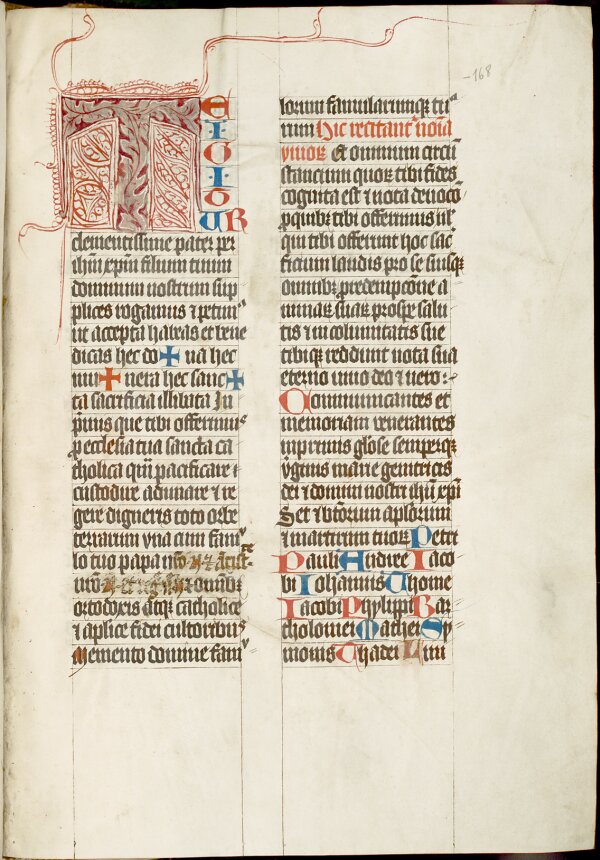 -168
TE
I
G
I
T
UR
clementissime pater per
ihm xpm filium tuum
dominum nostrum sup
plices rogamus ⁊ petim⁹
ut accepta habeas et bene
dicas hec do✚ na hec
mu✚ nera hec sanc✚
ta sacrificia illibata In
primis que tibi offerim⁹
p ecclesia tua sancta ca
tholica quā pacificare ⁊
custodire adunare ⁊ re
gere digneris toto orbe
terrarum vna cum fam
lo tuo papa nr̄o
nr̄o ⁊ omnibꝫ
ortodoxis atqꝫ catholice
⁊ aplice fidei cultoribus
Memento domine famu
lorum famularumqꝫ tu
rum Hic recitant᷑ noīa
viuoꝝ Et omnium circū
stancium quoꝝ tibi fides
cognita est ⁊ nota deuoco
p quibꝫ tibi offerimus ul᷑
qui tibi offerunt hoc sac
ficium laudis pro se suisqꝫ
omnibꝫ p redempcōne a
nimaꝝ suaꝝ pro spe salu
tis ⁊ incolumitatis sue
tibiqꝫ reddunt uota sua
eterno uiuo deo ⁊ uero :
Communicantes et
memoriam venerantes
inprimis gl̄ose semperqꝫ
v̄ginis marie genitricis
dei ⁊ domini nostri ihū xpī
Set ⁊ btōrum aplorum
⁊ martirum tuoꝝ Petri
Pauli Andree Iaco
bi Iohannis Thome
Iacobi Phylippi Bar
tholomei Mathei Sy
monis Thadei Lini